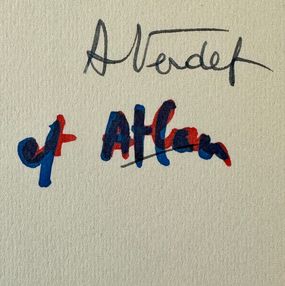 A Verdet
et Atlan